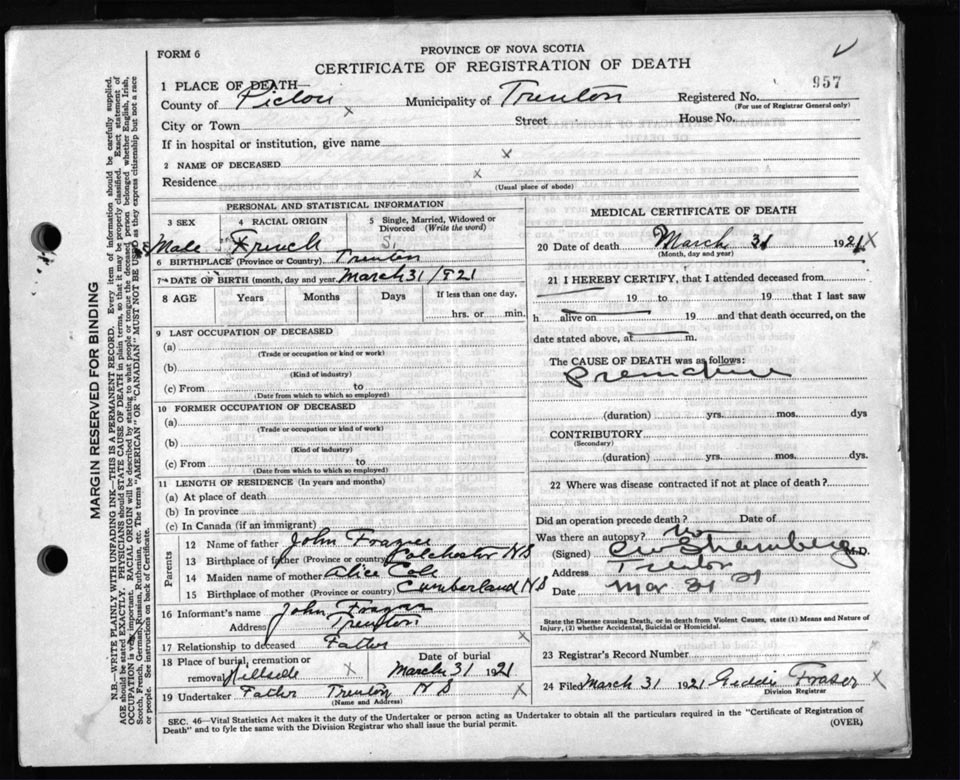 FORM 6
PROVINCE OF NOVA SCOTIA
CERTIFICATE OF REGISTRATION OF DEATH
957
1 PLACE OF DEATH—
County of Pictou x Municipality of Trenton Registered No.
(For use of Registrar General only)
City or Town Street House No.
If in hospital or institution, give name
x
2 NAME OF DECEASED
Residence x
(Usual place of abode)
PERSONAL AND STATISTICAL INFORMATION
3 SEX 4 RACIAL ORIGIN 5 Single, Married, Widowed or Divorced (Write the word)
Male French S.
6 BIRTHPLACE (Province or Country) Trenton
7 DATE OF BIRTH (month, day and year) March 31/921
8 AGE Years Months Days If less than one day,
hrs. or min.
9 LAST OCCUPATION OF DECEASED
(a)
(Trade or occupation or kind or work)
(b)
(Kind of industry)
(c) From to
(Date from which to which so employed)
10 FORMER OCCUPATION OF DECEASED
(a)
(Trade or occupation or kind or work)
(b)
(Kind of industry)
(c) From to
(Date from which to which so employed)
11 LENGTH OF RESIDENCE (In years and months)
(a) At place of death
(b) In province
(c) In Canada (if an immigrant)
Parents
12 Name of father John Frazer
13 Birthplace of father (Province or country) Colchester NS
14 Maiden name of mother Alice Cole
15 Birthplace of mother (Province or country) Cumberland NS
16 Informant's name John Frazer
Address Trenton x
17 Relationship to deceased Father
18 Place of burial, cremation or removal Hillside x
Date of burial
March 31 1921
19 Undertaker Father Trenton NS x
(Name and Address)
MEDICAL CERTIFICATE OF DEATH
20 Date of death March 31 1921 x
(Month, day and year)
21 I HEREBY CERTIFY, that I attended deceased from
19 to 19 that I last saw
h alive on 19 and that death occurred, on the
date stated above, at m.
The CAUSE OF DEATH was as follows:
Premature
(duration) yrs. mos. dys
CONTRIBUTORY
(Secondary)
(duration) yrs. mos. dys.
22 Where was disease contracted if not at place of death?
Did an operation precede death? Date of
Was there an autopsy? No
(Signed) M.D.
Address Trenton
Date Mar 31 21
State the Disease causing Death, or in death from Violent Causes, state (1) Means and Nature of
Injury, (2) whether Accidental, Suicidal or Homicidal.
23 Registrar's Record Number
24 Filed March 31 1921 Fraser x
Division Registrar
SEC. 46—Vital Statistics Act makes it the duty of the Undertaker or person acting as Undertaker to obtain all the particulars required in the "Certificate of Registration of
Death" and to fyle the same with the Division Registrar who shall issue the burial permit.
(OVER)
MARGIN RESERVED FOR BINDING
N.B.—WRITE PLAINLY WITH UNFADING INK—THIS IS A PERMANENT RECORD. Every item of information should be carefully supplied.
AGE should be stated EXACTLY. PHYSICIANS should STATE CAUSE OF DEATH in plain terms, so that it may be properly classified. Exact statement of
OCCUPATION is very important. RACIAL ORIGIN will be described by stating to what people or tongue the deceased person belonged whether English, Irish,
Scotch, French, German, Russian, Ruthenian, etc. The terms "AMERICAN" OR "CANADIAN" MUST NOT BE USED as they express citizenship but not a race
or people. See instructions on back of Certificate.